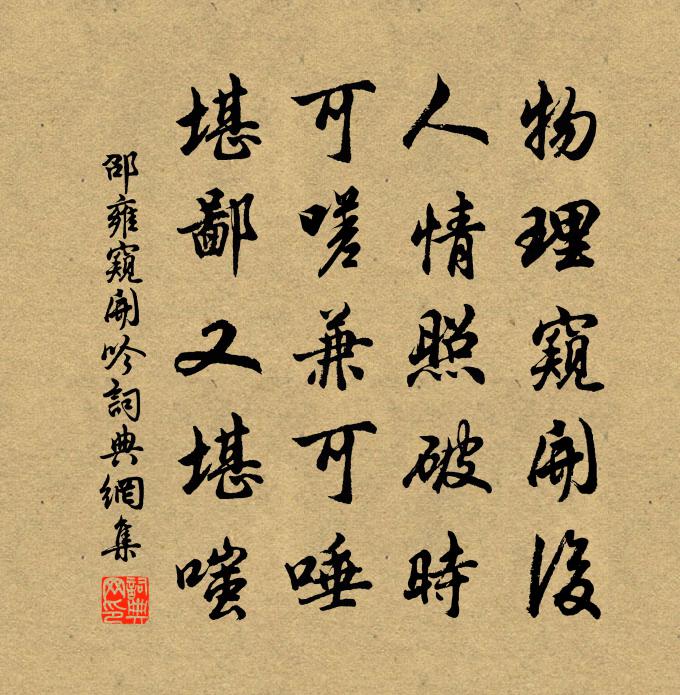 物理窺開後
人情照破時
可嗟兼可唾
堪鄙又堪嗤
邵雍窺開吟詞典網集
詞典網印